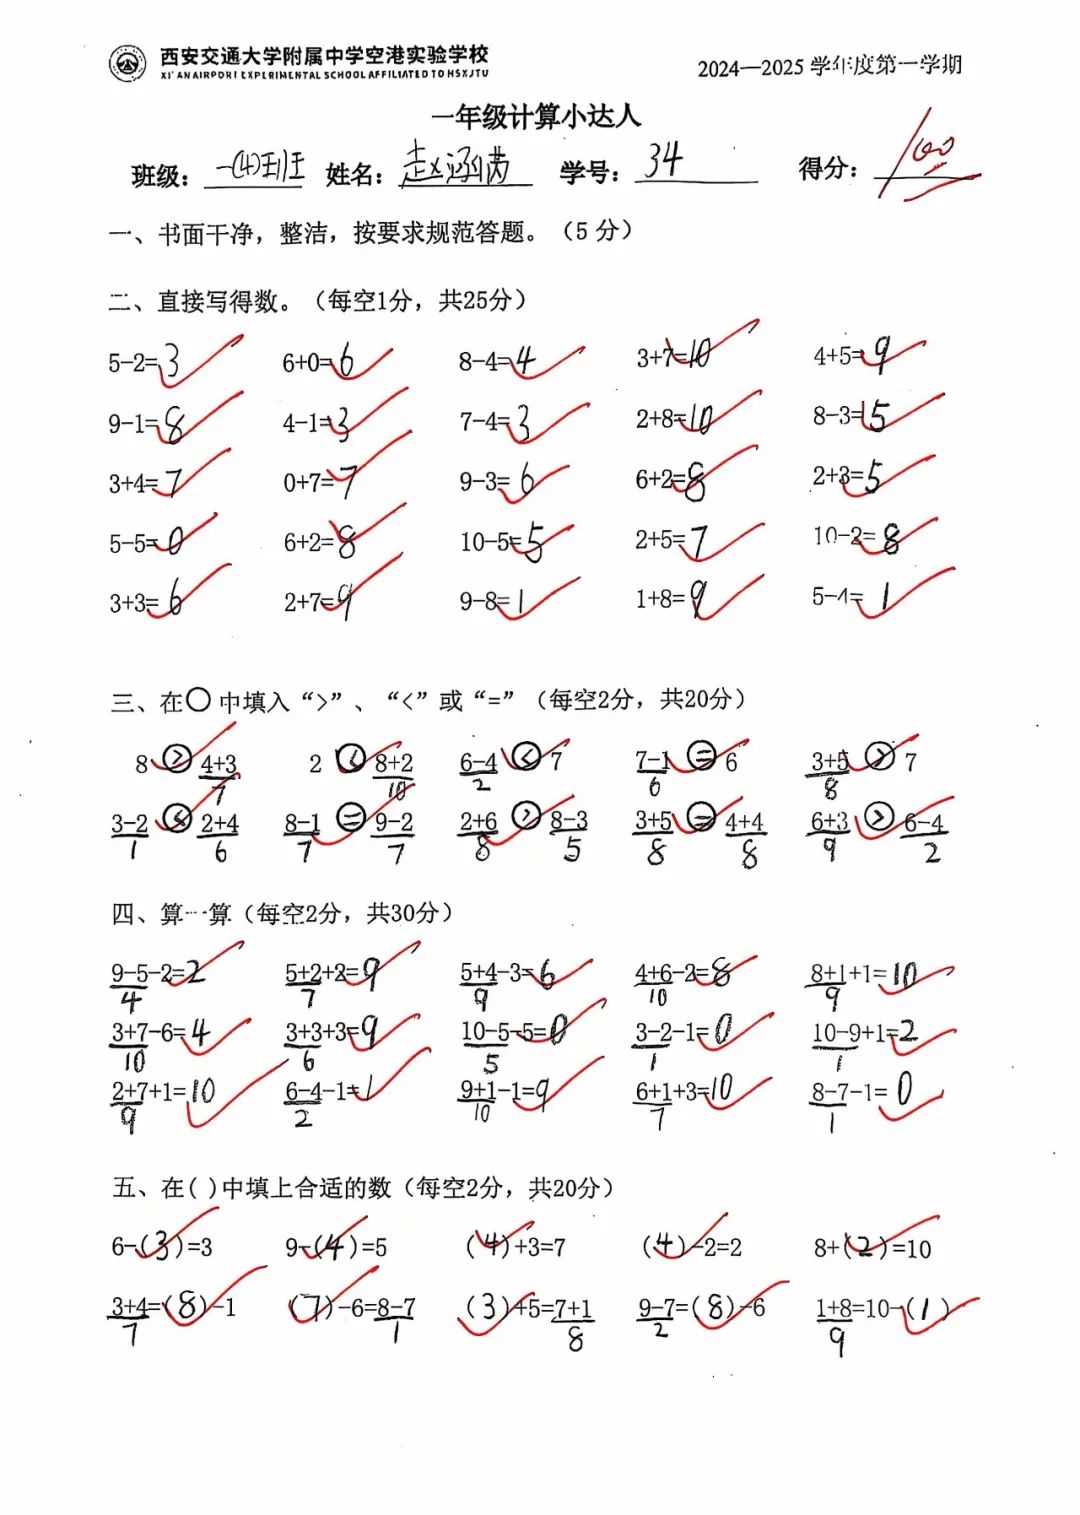 西安交通大学附属中学空港实验学校
XI'AN AIRPORT EXPERIMENTAL SCHOOL AFFILIATED TO HSXJTU
2024—2025 学年度第一学期
一年级计算小达人
班级: 一(4)班 姓名: 赵涵 学号: 34 得分: 100
一、书面干净，整洁，按要求规范答题。（5 分）
二、直接写得数。（每空1分，共25分）
5-2=3 6+0=6 8-4=4 3+7=10 4+5=9
9-1=8 4-1=3 7-4=3 2+8=10 8-3=5
3+4=7 0+7=7 9-3=6 6+2=8 2+3=5
5-5=0 6+2=8 10-5=5 2+5=7 10-2=8
3+3=6 2+7=9 9-8=1 1+8=9 5-4=1
三、在○中填入“>”、“<”或“=”（每空2分，共20分）
8 > 4+3 2 < 8+2 6-4 < 7 7-1 = 6 3+5 > 7
7 10 2 6 8
3-2 < 2+4 8-1 = 9-2 2+6 > 8-3 3+5 = 4+4 6+3 > 6-4
1 6 7 7 8 5 8 8 9 2
四、算一算（每空2分，共30分）
9-5-2=2 5+2+2=9 5+4-3=6 4+6-2=8 8+1+1=10
4 7 9 10 9
3+7-6=4 3+3+3=9 10-5-5=0 3-2-1=0 10-9+1=2
10 6 5 1 1
2+7+1=10 6-4-1=1 9+1-1=9 6+1+3=10 8-7-1=0
9 2 10 7 1
五、在( )中填上合适的数（每空2分，共20分）
6-(3)=3 9-(4)=5 (4)+3=7 (4)-2=2 8+(2)=10
3+4=(8)-1 (7)-6=8-7 (3)+5=7+1 9-7=(8)-6 1+8=10-(1)
7 1 8 2 9